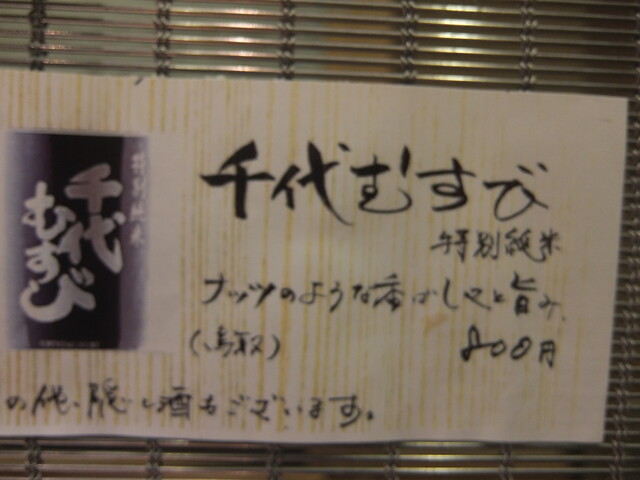 特別純米
千代
むすび
千代むすび
特別純米
ナッツのような香ばしさと旨み
(鳥取) 800円
の他、隠し酒もございます。